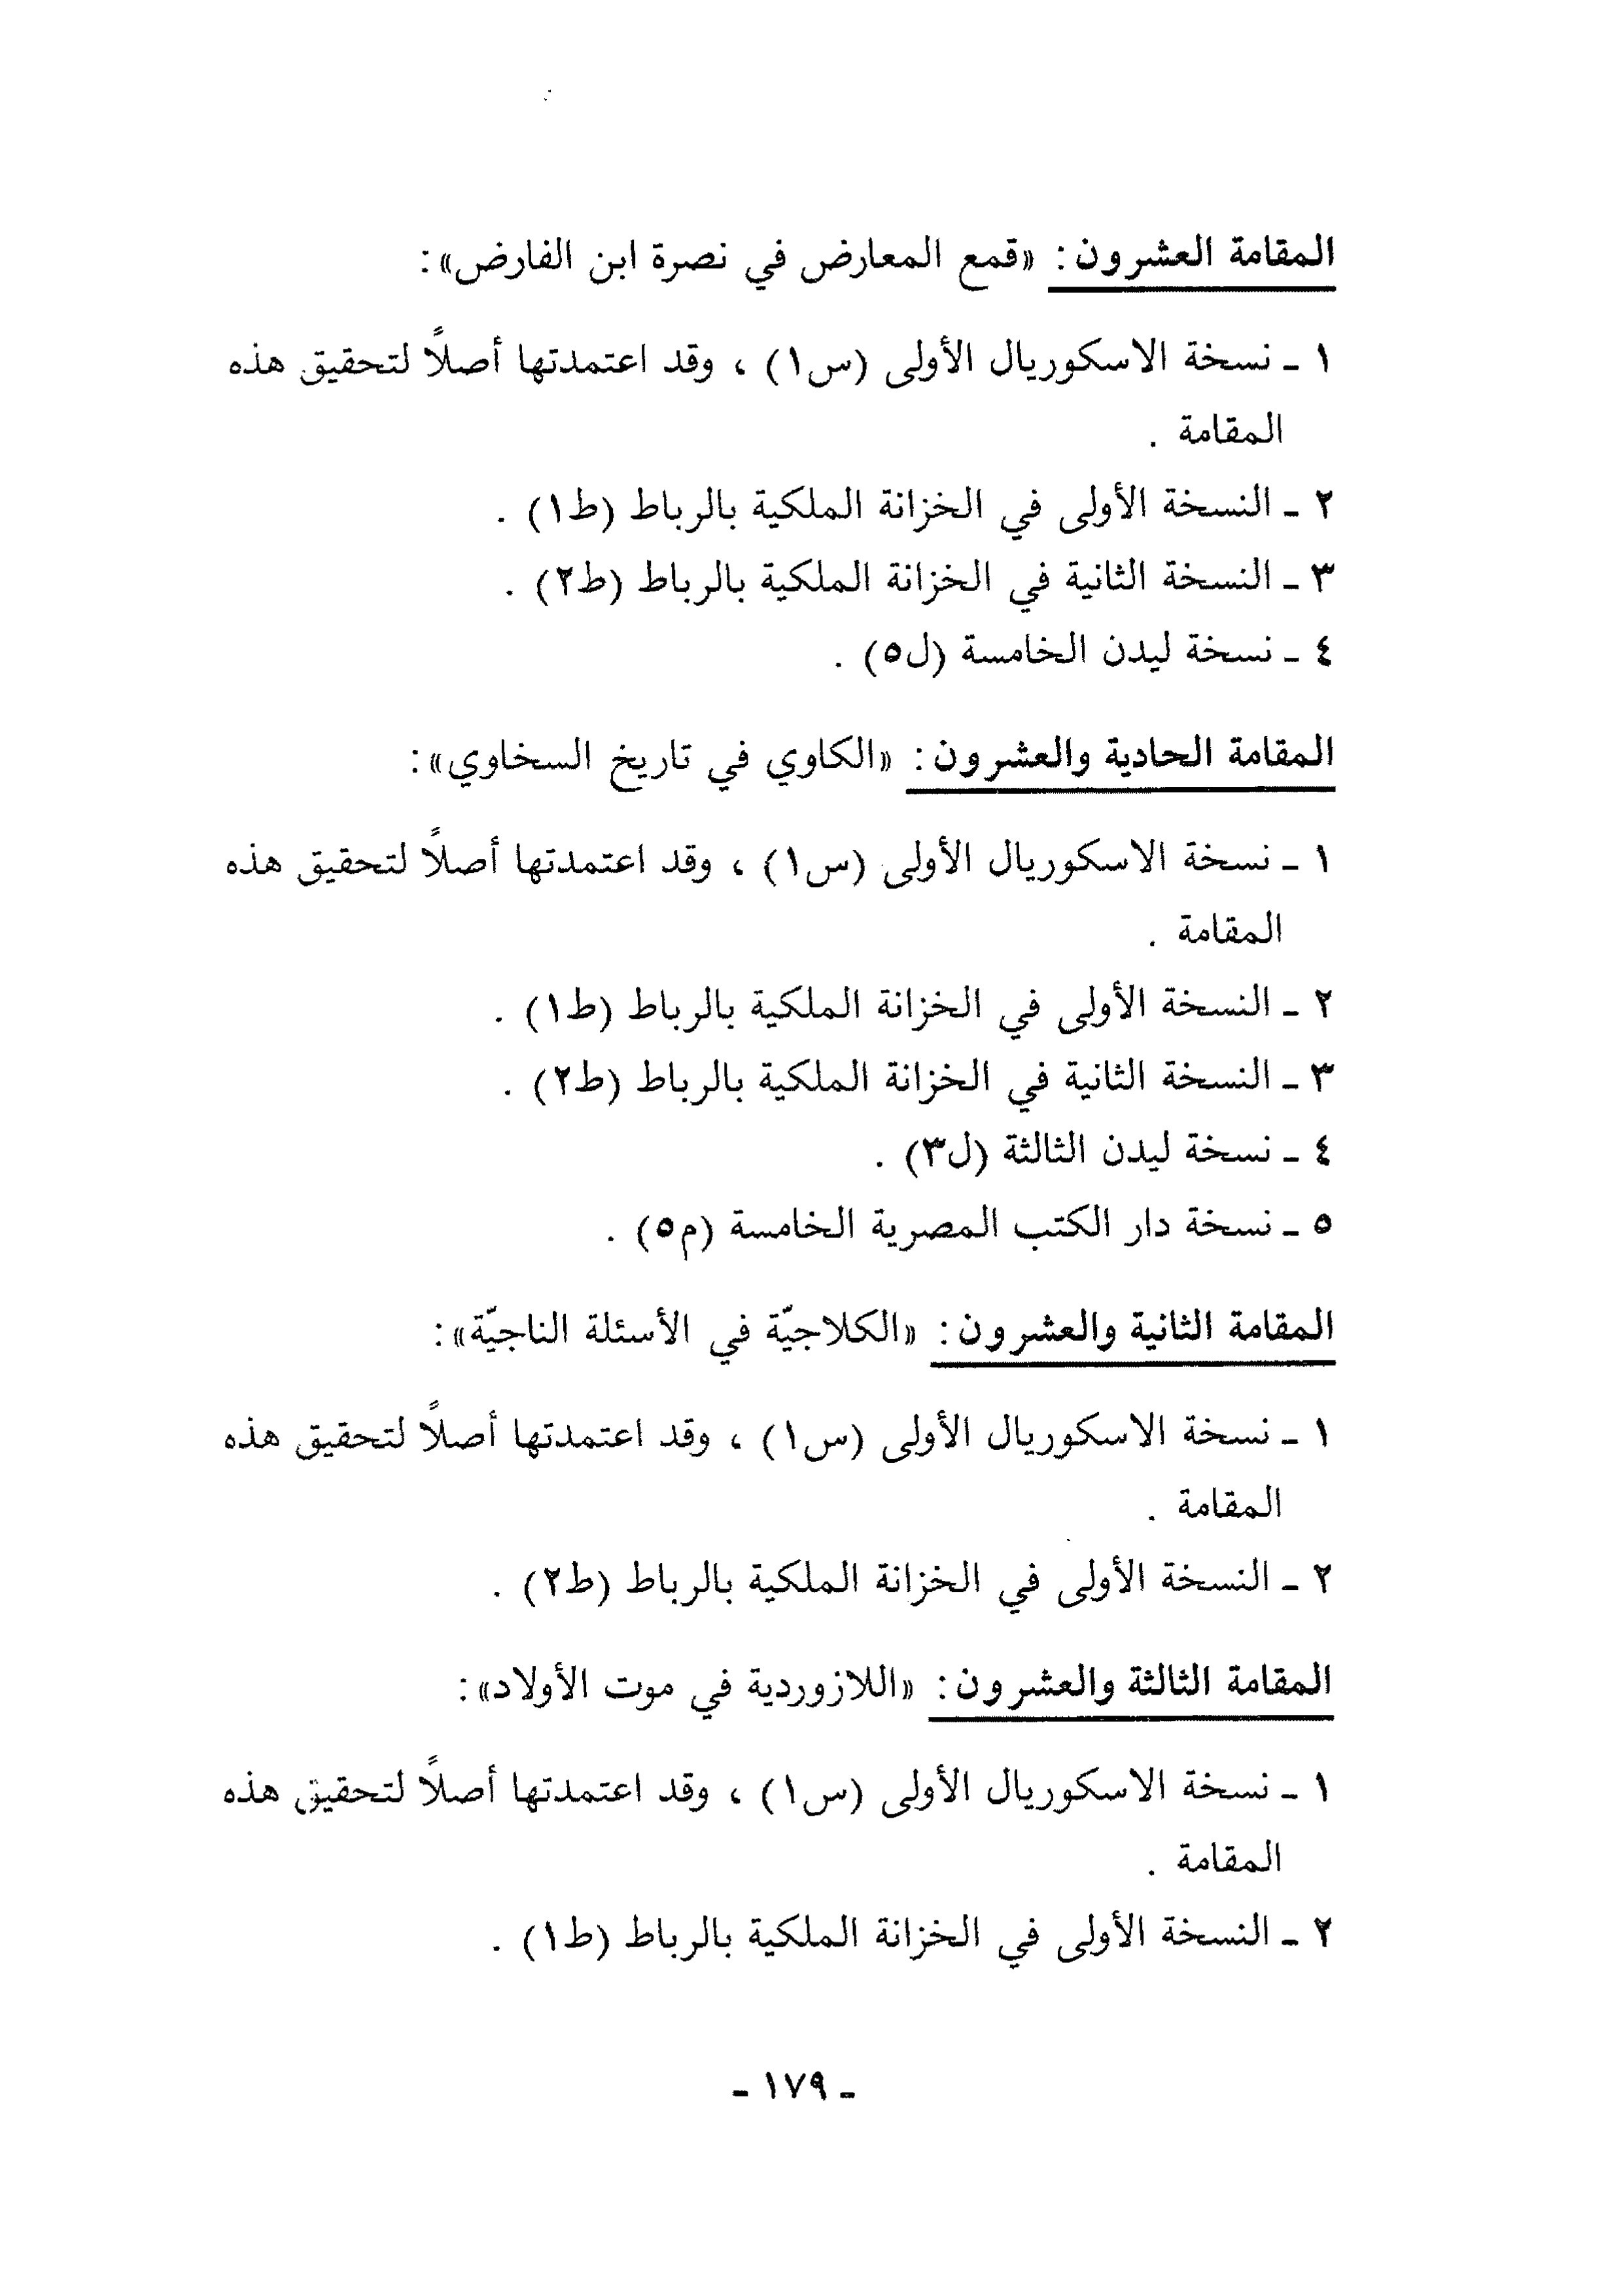 المقامة العشرون: «قمع المعارض في نصرة ابن الفارض»:
١ ـ نسخة الاسكوريال الأولى (س١) ، وقد اعتمدتها أصلاً لتحقيق هذه
المقامة .
٢ ـ النسخة الأولى في الخزانة الملكية بالرباط (ط١) .
٣ ـ النسخة الثانية في الخزانة الملكية بالرباط (ط٢) .
٤ ـ نسخة ليدن الخامسة (ل٥) .
المقامة الحادية والعشرون: «الكاوي في تاريخ السخاوي»:
١ ـ نسخة الاسكوريال الأولى (س١) ، وقد اعتمدتها أصلاً لتحقيق هذه
المقامة .
٢ ـ النسخة الأولى في الخزانة الملكية بالرباط (ط١) .
٣ ـ النسخة الثانية في الخزانة الملكية بالرباط (ط٢) .
٤ ـ نسخة ليدن الثالثة (ل٣) .
٥ ـ نسخة دار الكتب المصرية الخامسة (م٥) .
المقامة الثانية والعشرون: «الكلاجيّة في الأسئلة الناجيّة»:
١ ـ نسخة الاسكوريال الأولى (س١) ، وقد اعتمدتها أصلاً لتحقيق هذه
المقامة .
٢ ـ النسخة الأولى في الخزانة الملكية بالرباط (ط٢) .
المقامة الثالثة والعشرون: «اللازوردية في موت الأولاد»:
١ ـ نسخة الاسكوريال الأولى (س١) ، وقد اعتمدتها أصلاً لتحقيق هذه
المقامة .
٢ ـ النسخة الأولى في الخزانة الملكية بالرباط (ط١) .
ـ ١٧٩ ـ